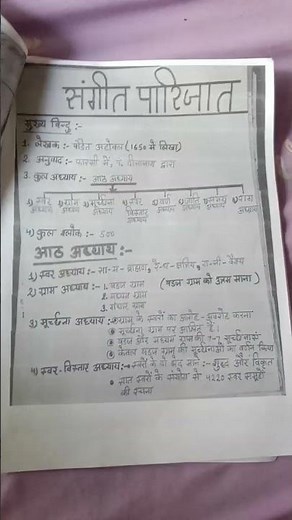 संगीत पारिजात
मुख्य बिन्दु :-
1. लेखक :- पंडित अहोबल (1650 में लिखा)
2. अनुवाद :- फारसी में, पं. दीनानाथ द्वारा
3. कुल अध्याय :- आठ अध्याय
1) स्वर अध्याय 2) ग्राम अध्याय 3) मूर्च्छना अध्याय 4) स्वर विस्तार अध्याय 5) 6) 7) 8) अध्याय
4) कुल श्लोक :- 500
आठ अध्याय :-
1) स्वर अध्याय :- सा-म - ब्राह्मण, रे-ध क्षत्रिय, ग-नी - वैश्य
2) ग्राम अध्याय :- 1. षडज ग्राम (षडज ग्राम को उत्तम माना)
2. मध्यम ग्राम
3. गंधार ग्राम
3) मूर्च्छना अध्याय :- ग्राम के स्वरों का आरोह-अवरोह करना
मूर्च्छना ग्राम पर आश्रित है।
षडज और मध्यम ग्राम की 7-7 मूर्च्छनाएं
केवल षडज ग्राम की मूर्च्छनाओं का वर्णन किया
4) स्वर-विस्तार अध्याय :- स्वरों के दो भेद माने - शुद्ध और विकृत
सात स्वरों के संयोग से 4220 स्वर समूहों
की रचना